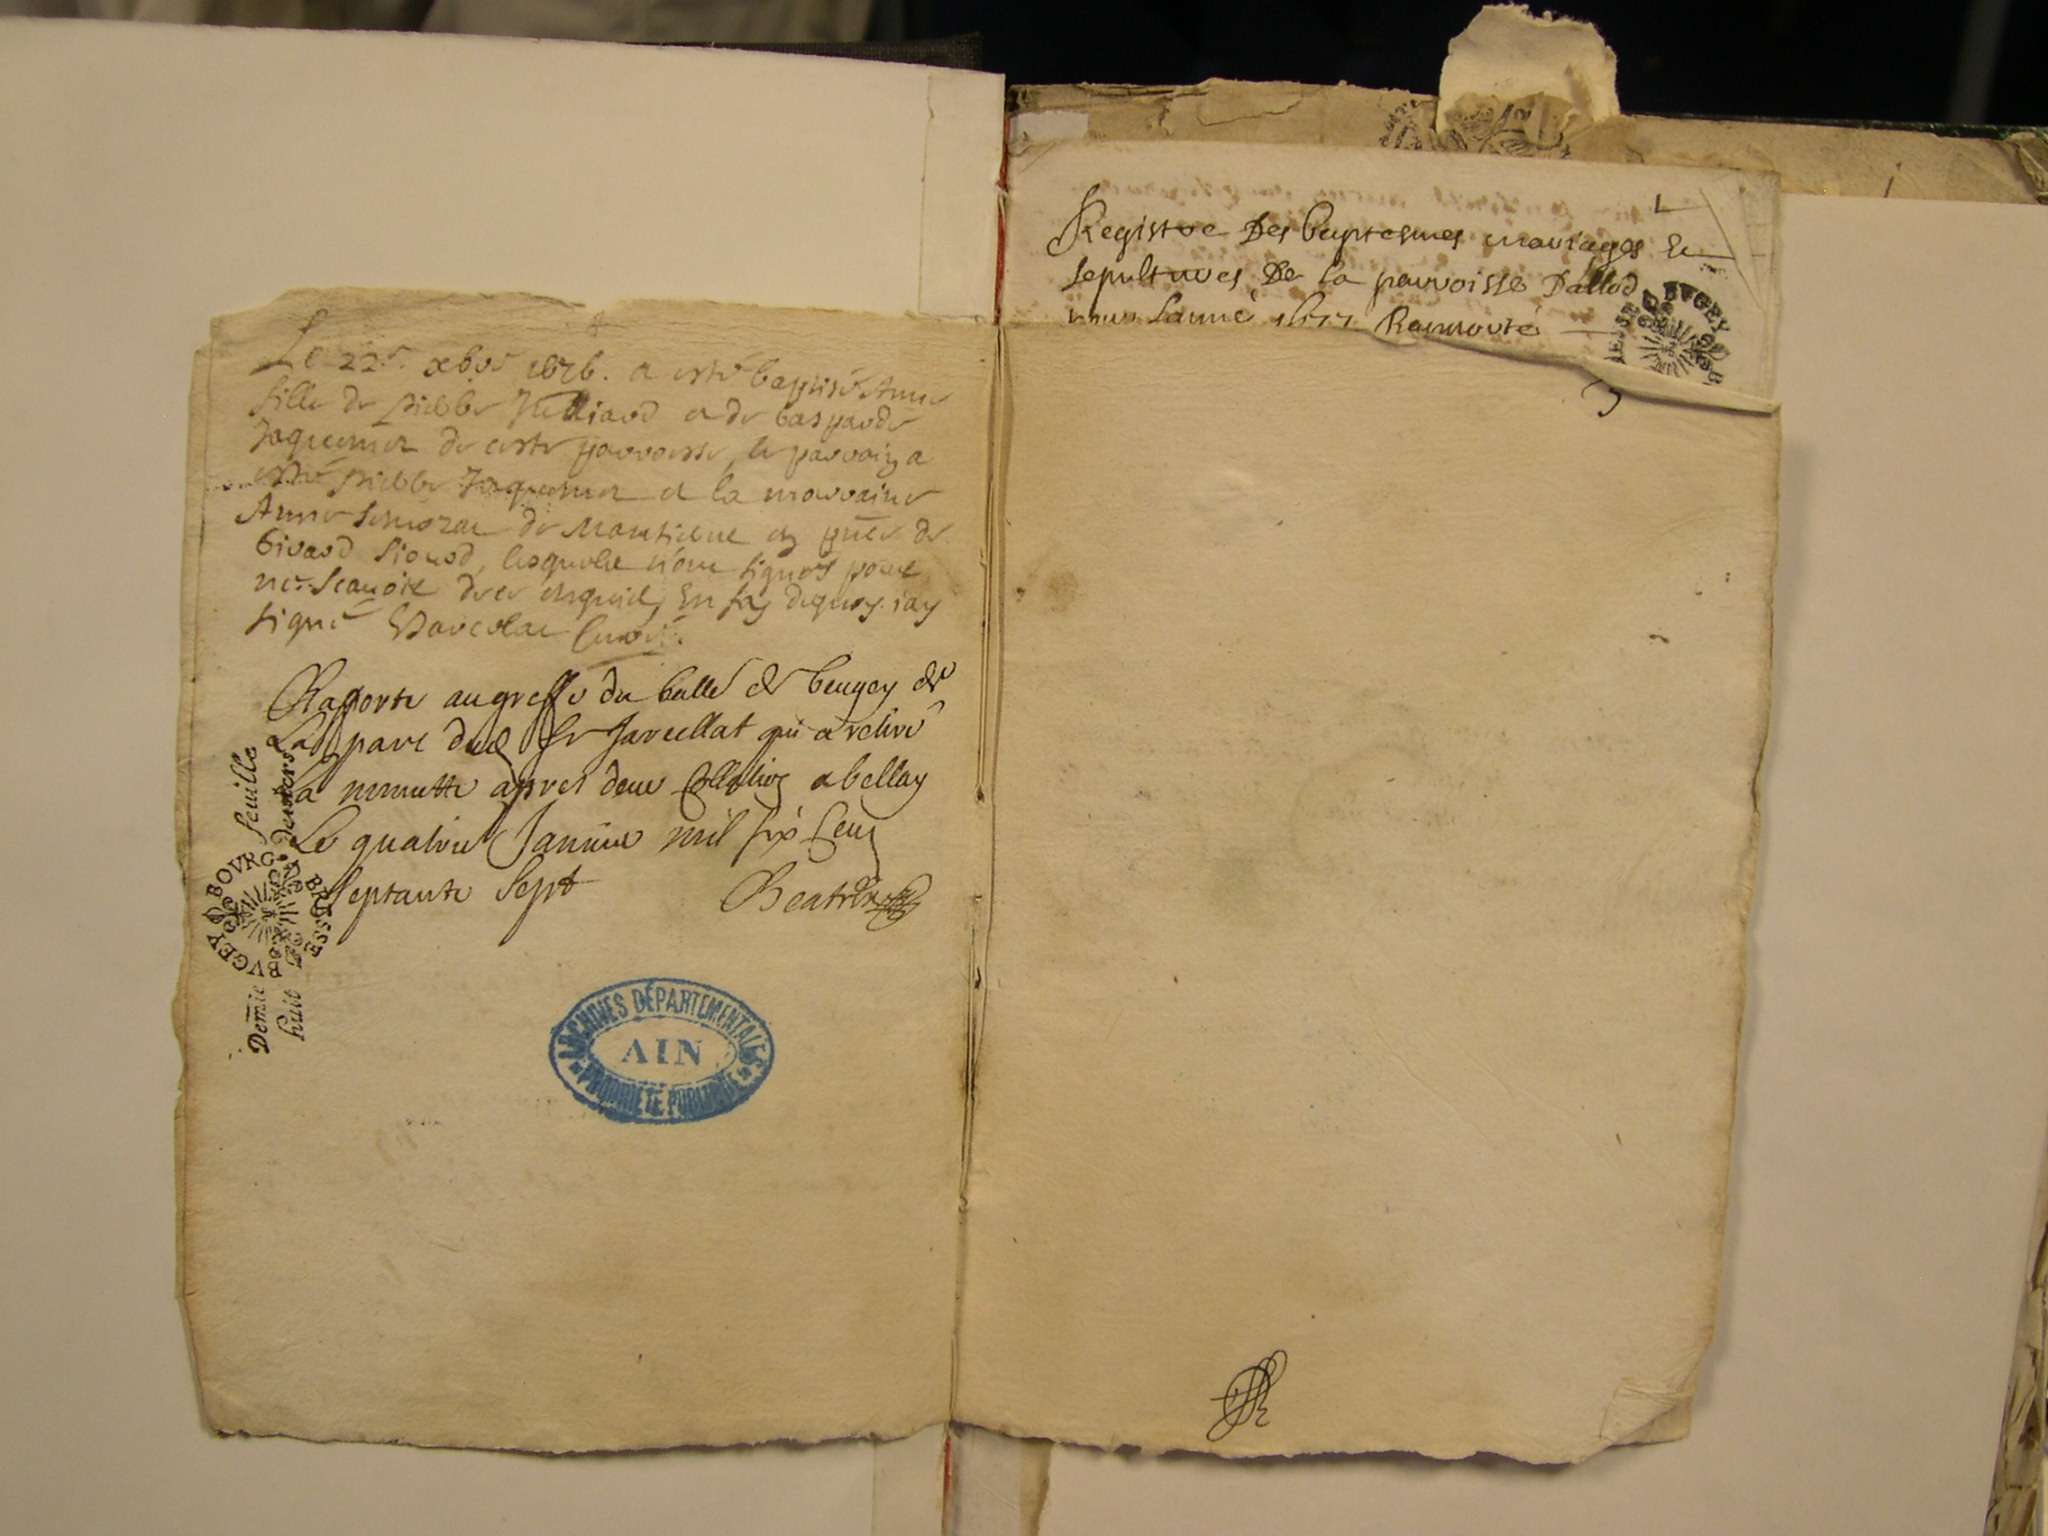 Le 22e xbre 1676. a esté baptisée Anne
fille de pierre Julliard et de Gasparde
Jaquemet de ceste parroisse, le parrain a
esté pierre Jaquemet et la marraine
Anne de en pnce de
Girard lesquels n'ont signés pour
ne scavoir de ce enquis, En foy dequoy iay
signé Jarcelat Curé.
Raporte au greffe du balle de beugey de
La part dud Sr Jarcellat qui a retiré
La minutte apres deue Collation a bellay
Le quatrie Janvier mil six Cent
Septante Sept Beatrix
feuille
deniers
BOURG BRESSE BVGEY
Demie
huit
ARCHIVES DÉPARTEMENTALES
AIN
PROPRIÉTÉ PUBLIQUE
Registre Des baptesmes mariages Et
sepultures De la parroisse Dallod
pour Lannè 1677 Rapporté
BVGEY
3